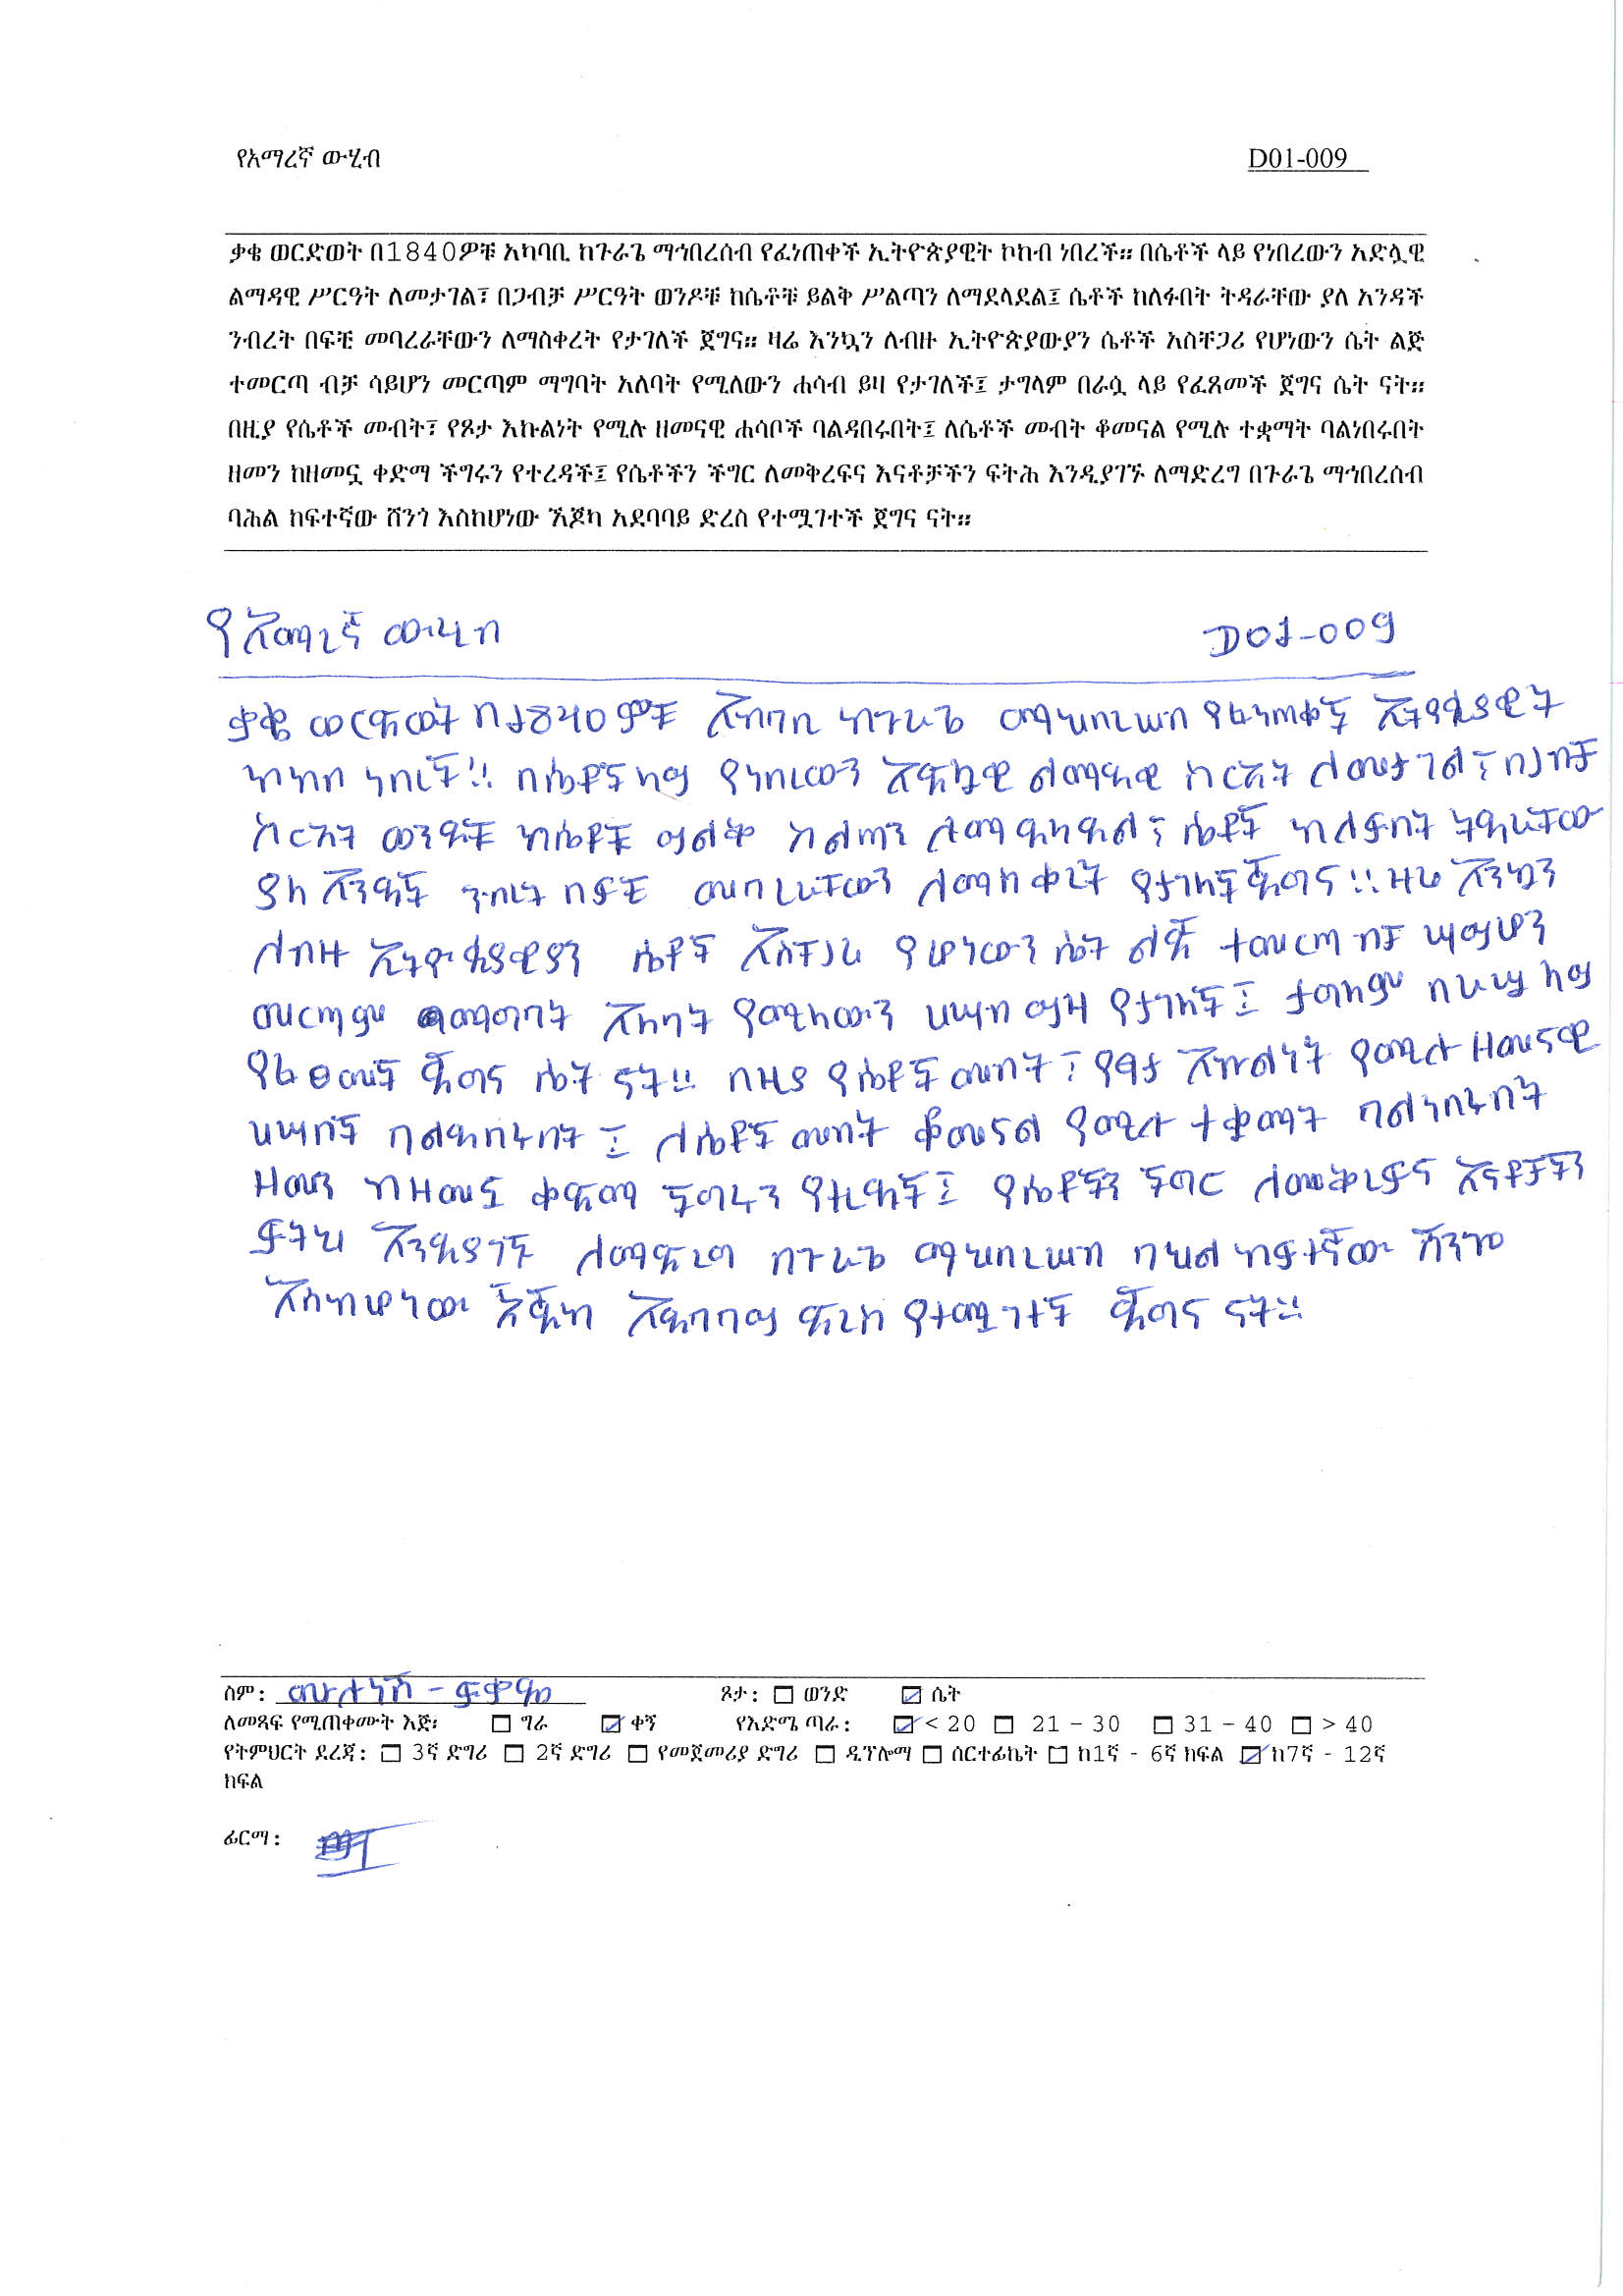 የአማረኛ ውሂብ D01-009
ቃቄ ወርድወት በ1840ዎቹ አካባቢ ከጉራጌ ማኅበረሰብ የፈነጠቀች ኢትዮጵያዊት ኮከብ ነበረች። በሴቶች ላይ የነበረውን አድሏዊ
ልማዳዊ ሥርዓት ለመታገል፣ በጋብቻ ሥርዓት ወንዶቹ ከሴቶቹ ይልቅ ሥልጣን ለማደላደል፤ ሴቶች ከለፉበት ትዳራቸው ያለ አንዳች
ንብረት በፍቺ መባረራቸውን ለማስቀረት የታገለች ጀግና። ዛሬ እንኳን ለብዙ ኢትዮጵያውያን ሴቶች አስቸጋሪ የሆነውን ሴት ልጅ
ተመርጣ ብቻ ሳይሆን መርጣም ማግባት አለባት የሚለውን ሐሳብ ይዛ የታገለች፤ ታግላም በራሷ ላይ የፈጸመች ጀግና ሴት ናት።
በዚያ የሴቶች መብት፣ የጾታ እኩልነት የሚሉ ዘመናዊ ሐሳቦች ባልዳበሩበት፤ ለሴቶች መብት ቆመናል የሚሉ ተቋማት ባልነበሩበት
ዘመን ከዘመኗ ቀድማ ችግሩን የተረዳች፤ የሴቶችን ችግር ለመቅረፍና እናቶቻችን ፍትሕ እንዲያገኙ ለማድረግ በጉራጌ ማኅበረሰብ
ባሕል ከፍተኛው ሸንጎ እስከሆነው ኧጆካ አደባባይ ድረስ የተሟገተች ጀግና ናት።
የአማረኛ ውሂብ D01-009
ቃቄ ወርድወት በ1840ዎቹ አካባቢ ከጉራጌ ማኅበረሠብ የፈነጠቀች ኢትዮጲያዊት
ኮከብ ነበረች!! በሴቶች ላይ የነበረውን አድሏዊ ልማዳዊ ስርአት ለመታገል፣ በጋብቻ
ስርአት ወንዶቹ ከሴቶቹ ይልቅ ስልጣን ለማደላደል፤ ሴቶች ከለፉበት ትዳራቸው
ያለ አንዳች ንብረት በፍቺ መባረራቸውን ለማስቀረት የታገለች ጀግና!! ዛሬ እንኳን
ለብዙ ኢትዮጲያዊያን ሴቶች አስቸጋሪ የሆነውን ሴት ልጅ ተመርጣ ብቻ ሣይሆን
መርጣም ማግባት አለባት የሚለውን ሀሣብ ይዛ የታገለች፤ ታግላም በራሧ ላይ
የፈፀመች ጀግና ሴት ናት!! በዚያ የሴቶች መብት፣ የፃታ እኩልነት የሚሉ ዘመናዊ
ሀሣቦች ባልዳበሩበት ፤ ለሴቶች መብት ቆመናል የሚሉ ተቋማት ባልነበሩበት
ዘመን ከዘመኗ ቀድማ ችግሩን የተረዳች፤ የሴቶችን ችግር ለመቅረፍና እናቶቻችን
ፍትህ እንዲያገኙ ለማድረግ በጉራጌ ማኅበረሠብ ባህል ከፍተኛው ሸንጎ
እስከሆነው ኧጆካ አደባባይ ድረስ የተሟገተች ጀግና ናት።
ስም: ሙሉነሽ - ፍቃዱ ጾታ: ወንድ ሴት
ለመጻፍ የሚጠቀሙት እጅ: ግራ ቀኝ የእድሜ ጣራ: < 20 21 – 30 31 – 40 > 40
የትምህርት ደረጃ: 3ኛ ድግሪ 2ኛ ድግሪ የመጀመሪያ ድግሪ ዲፕሎማ ሰርተፊኬት ከ1ኛ - 6ኛ ክፍል ከ7ኛ - 12ኛ
ክፍል
ፊርማ: